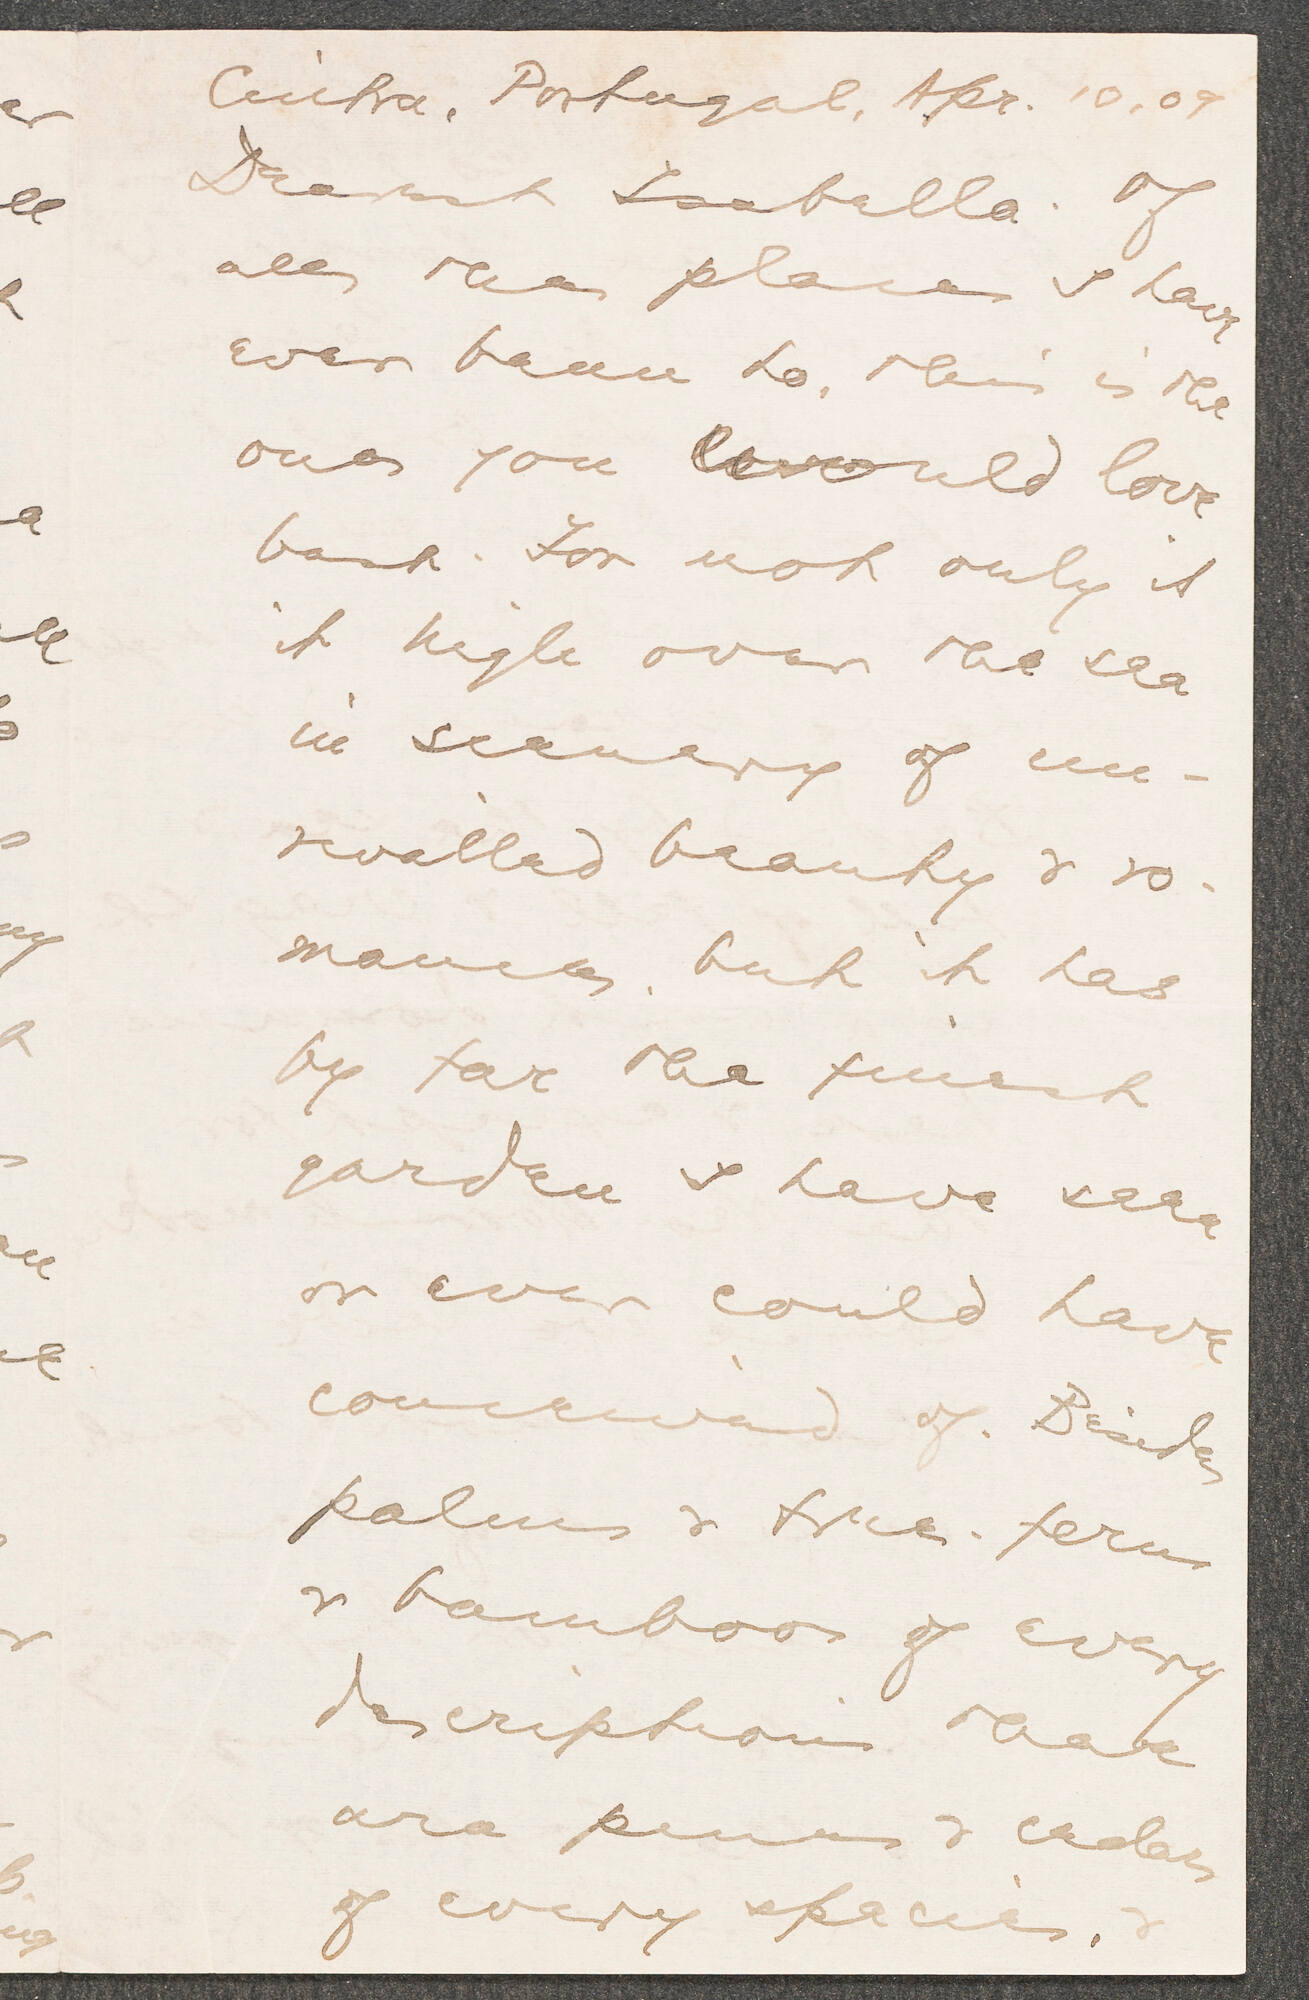 Cintra, Portugal, Apr. 10, 09
Dearest Isabella. Of
all the places I have
ever been to, this is the
one you would love
best. For not only is
it high over the sea
in scenery of un-
rivalled beauty & ro-
mance, but it has
by far the finest
garden I have seen
or ever could have
conceived of. Besides
palms & tree-ferns
& bamboos of every
description there
are pines & cedars
of every species, &